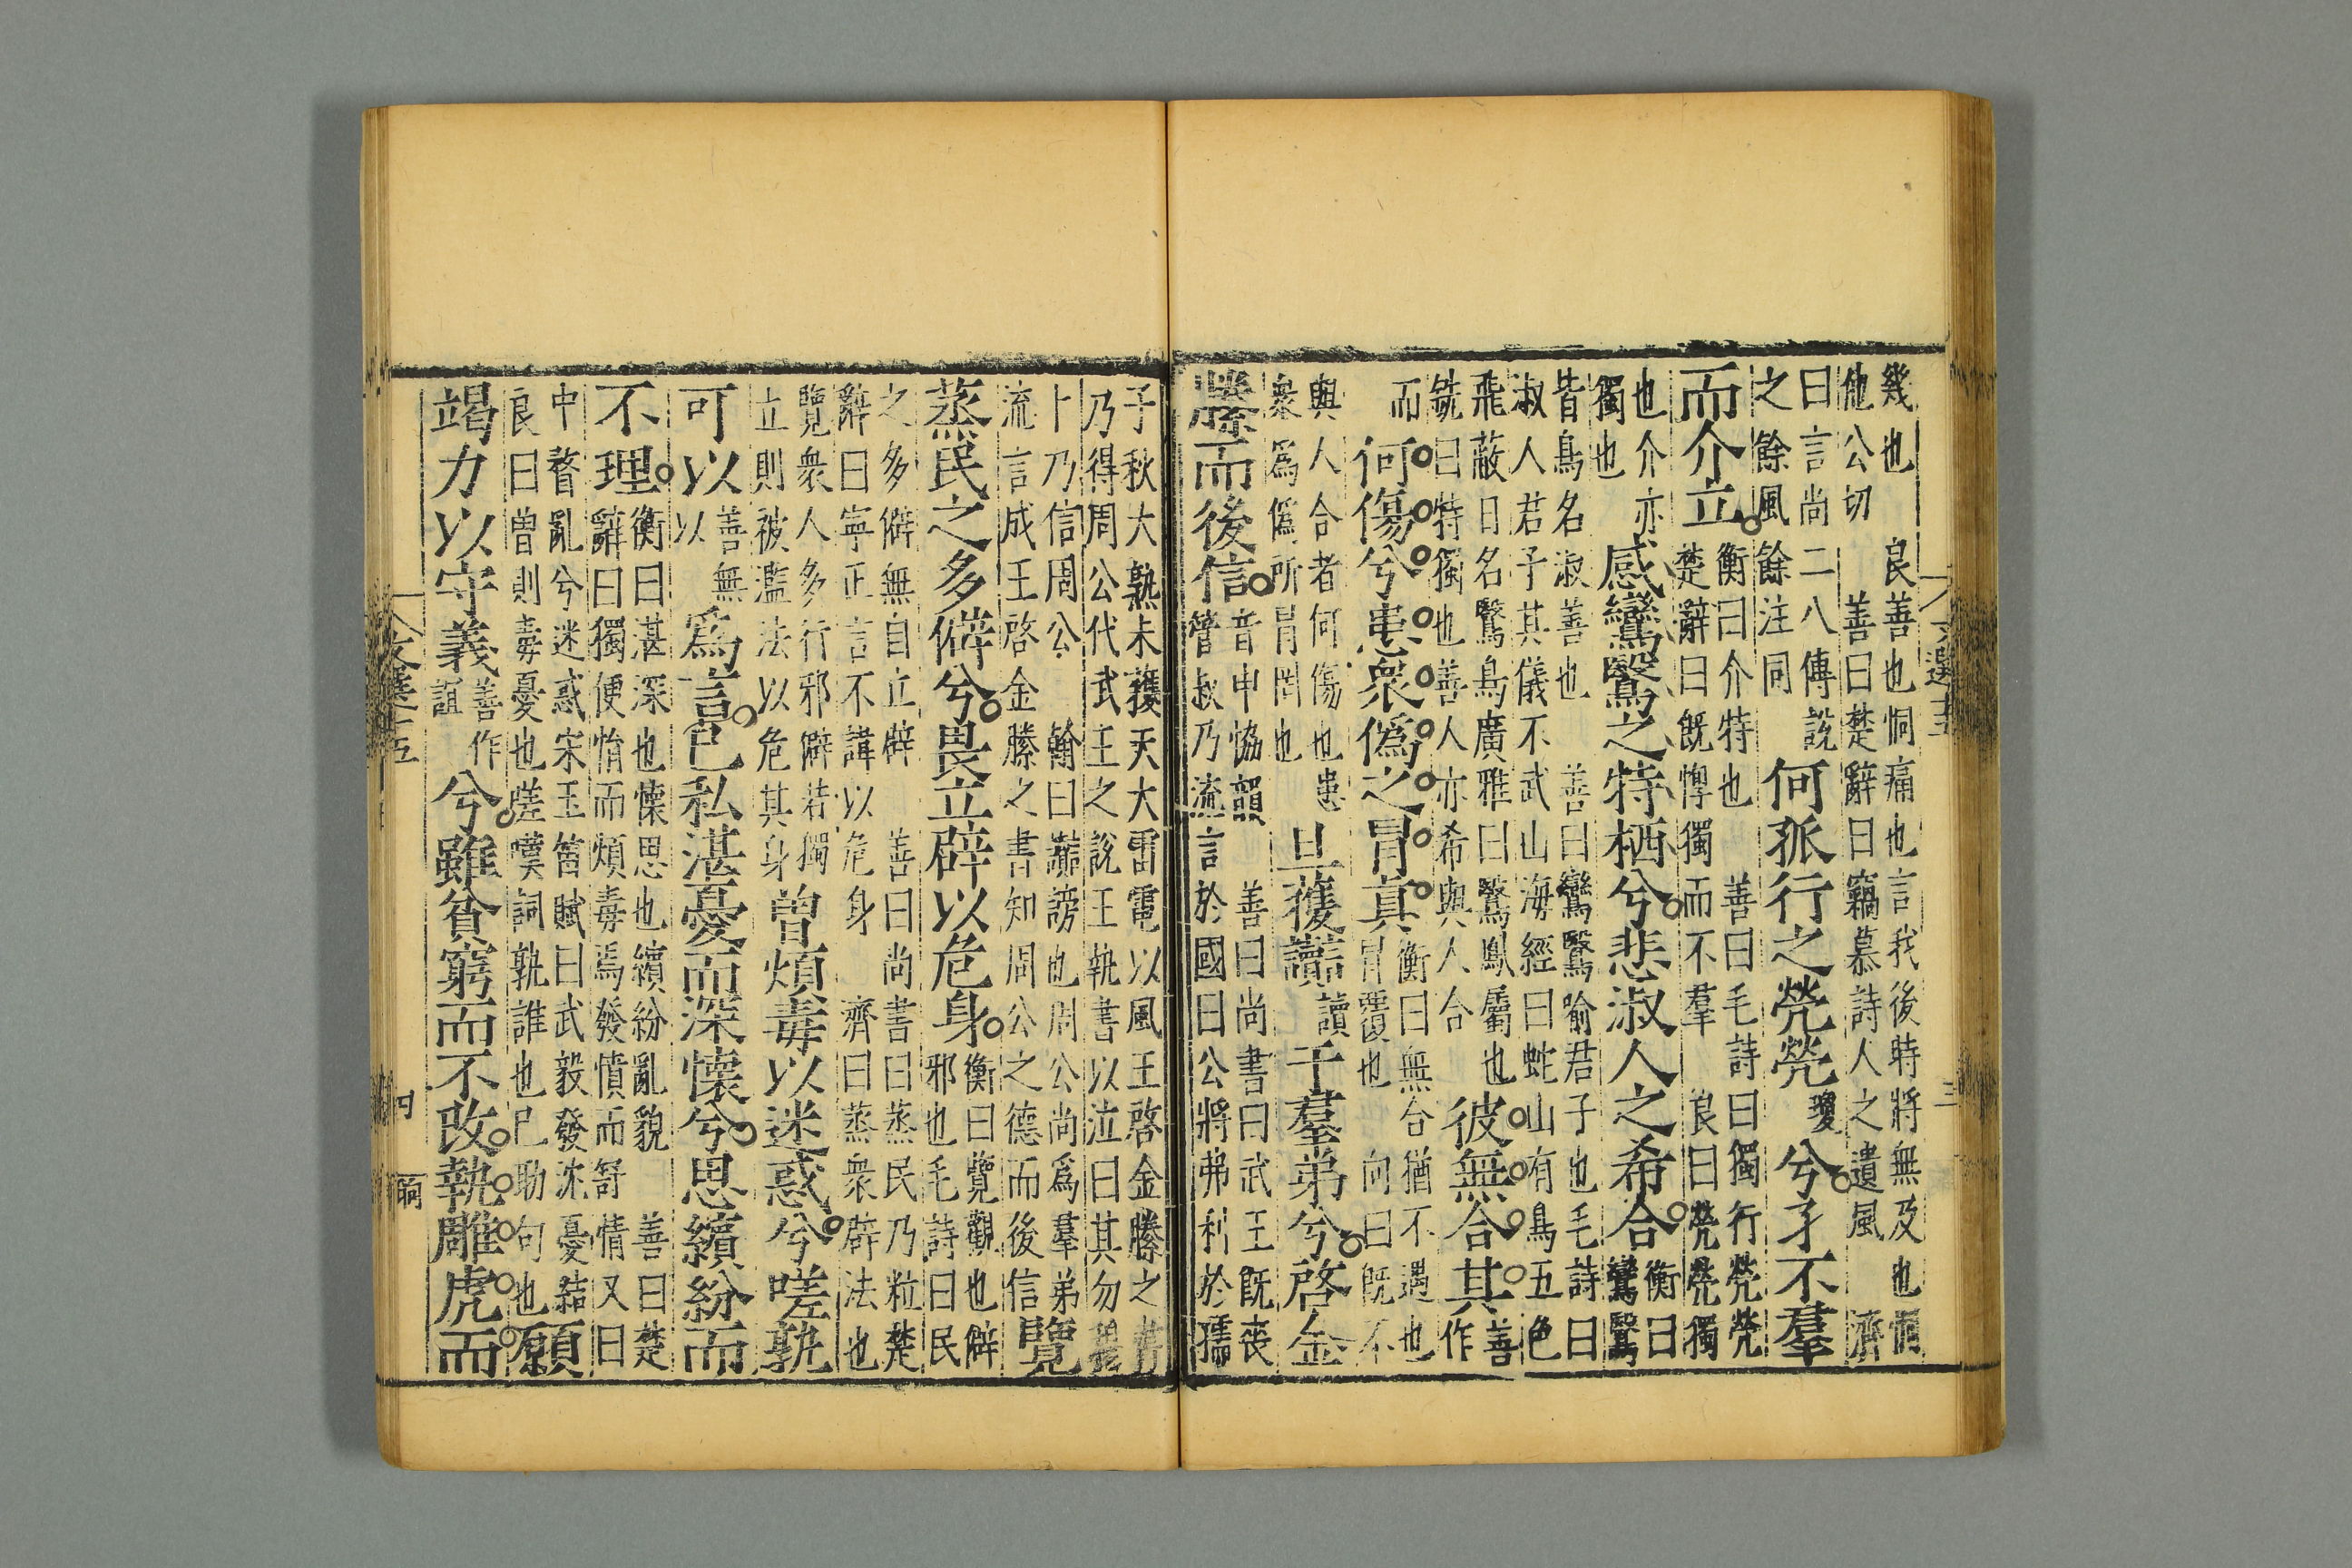 文選十五 三
幾也　良善也恫痛也言我後時將無及也恫
他公切　善曰楚辭曰竊慕詩人之遺風　濟
曰言尚二八傳說
之餘風餘注同
何孤行之煢煢瓊兮孑不羣
而介立。
衡曰介特也　善曰毛詩曰獨行煢煢
楚辭曰既惸獨而不羣　良曰煢煢獨
也介亦
獨也
感鸞鷖之特栖兮。悲淑人之希合。
衡曰
鸞鷖
皆鳥名淑善也　善曰鸞鷖喻君子也毛詩曰
淑人君子其儀不忒山海經曰蛇山有鳥五色
飛蔽日名鷖鳥廣雅曰鷖鳳屬也
銑曰特獨也善人亦希與人合
彼無合其
善作
而
何傷兮患衆僞之冒真
衡曰無合猶不遇也
冒覆也　向曰既不
與人合者何傷也患
衆爲僞所冒罔也
旦獲讟讀于羣弟兮。啓金
縢而後信。
音申協韻　善曰尚書曰武王既喪
管叔乃流言於國曰公將弗利於孺
子秋大熟未穫天大雷電以風王啓金縢之書
乃得周公代武王之說王執書以泣曰其勿穆
卜乃信周公　翰曰讟謗也周公尚爲羣弟
流言成王啓金縢之書知周公之德而後信
覽
蒸民之多僻兮。畏立辟以危身。
衡曰覽觀也僻
邪也毛詩曰民
之多僻無自立辟　善曰尚書曰蒸民乃粒楚
辭曰寧正言不諱以危身　濟曰蒸衆辟法也
覽衆人多行邪僻若獨
立則被濫法以危其身
曾煩毒以迷惑兮。嗟孰
可以
善無
以
爲言。己私湛憂而深懷兮。思繽紛而
不理。
衡曰湛深也懷思也繽紛亂貌　善曰楚
辭曰獨便悁而煩毒焉發憤而舒情又曰
中瞀亂兮迷惑宋玉笛賦曰武毅發沈憂結
良曰曾則毒憂也嗟嘆詞孰誰也己助句也
願
竭力以守義
善作
誼
兮。雖貧窮而不改。執雕虎而
文選十五 四